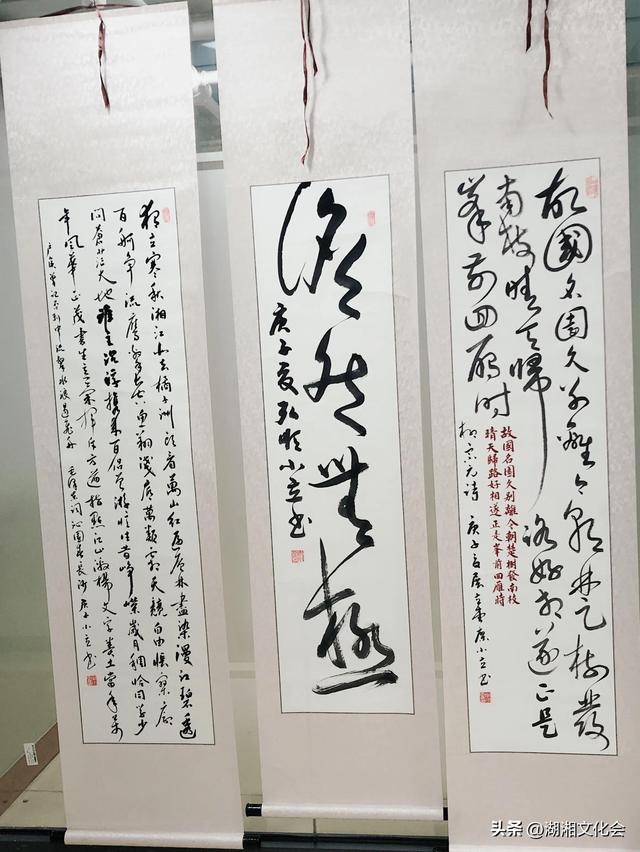 故國名園久別離今朝楚樹發
南枝晴天歸路好相逐正是
峯前回雁時
故國名園久别離今朝楚樹發南枝
晴天歸路好相逐正是峯前回雁時
柳宗元詩 庚子夏 小立书
澹然無極
庚子夏 小立书
獨立寒秋湘江北去橘子洲頭看萬山紅遍層林盡染漫江碧透
百舸爭流鷹擊長空魚翔淺底萬類霜天競自由悵寥廓
問蒼茫大地誰主沉浮攜來百侣曾游憶往昔崢嶸歲月稠恰同學少
年風華正茂書生意氣揮斥方遒指點江山激揚文字糞土當年萬
户侯曾記否到中流擊水浪遏飛舟 毛泽东词沁園春長沙 庚子小立书
头条 @湖湘文化会